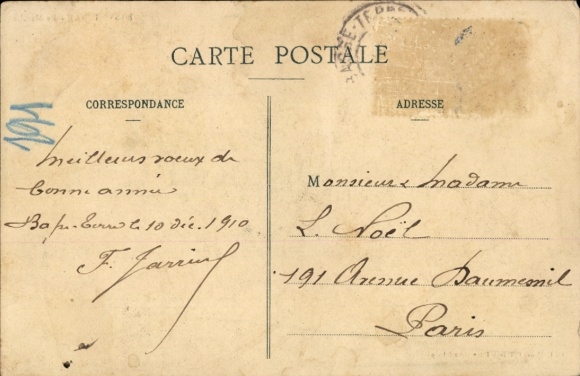 CARTE POSTALE
CORRESPONDANCE
ADRESSE
1911
Meilleurs voeux de
bonne année
Basse-Terre le 10 déc. 1910
F.
Monsieur & Madame
L. Noël
191 Avenue Daumesnil
Paris